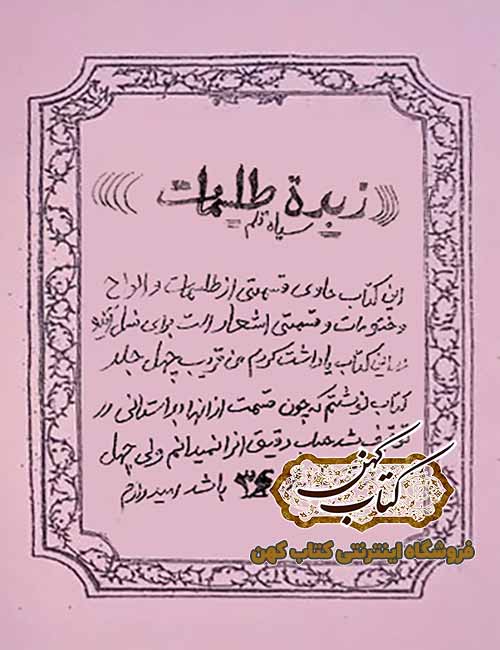 زبدة طلسمات
سیاه قلم
این کتاب حاوی قسمتی از طلسمات و الواح
و ختومات و قسمتی اشعار است برای نسل آینده
در این کتاب یاداشت کردم من قریب چهل جلد
کتاب نوشتم که چون قسمت از انها
شد دقیق انرا نمیدانم ولی چهل
باشد امید وارم
کتاب کهن
فروشگاه اینترنتی کتاب کهن